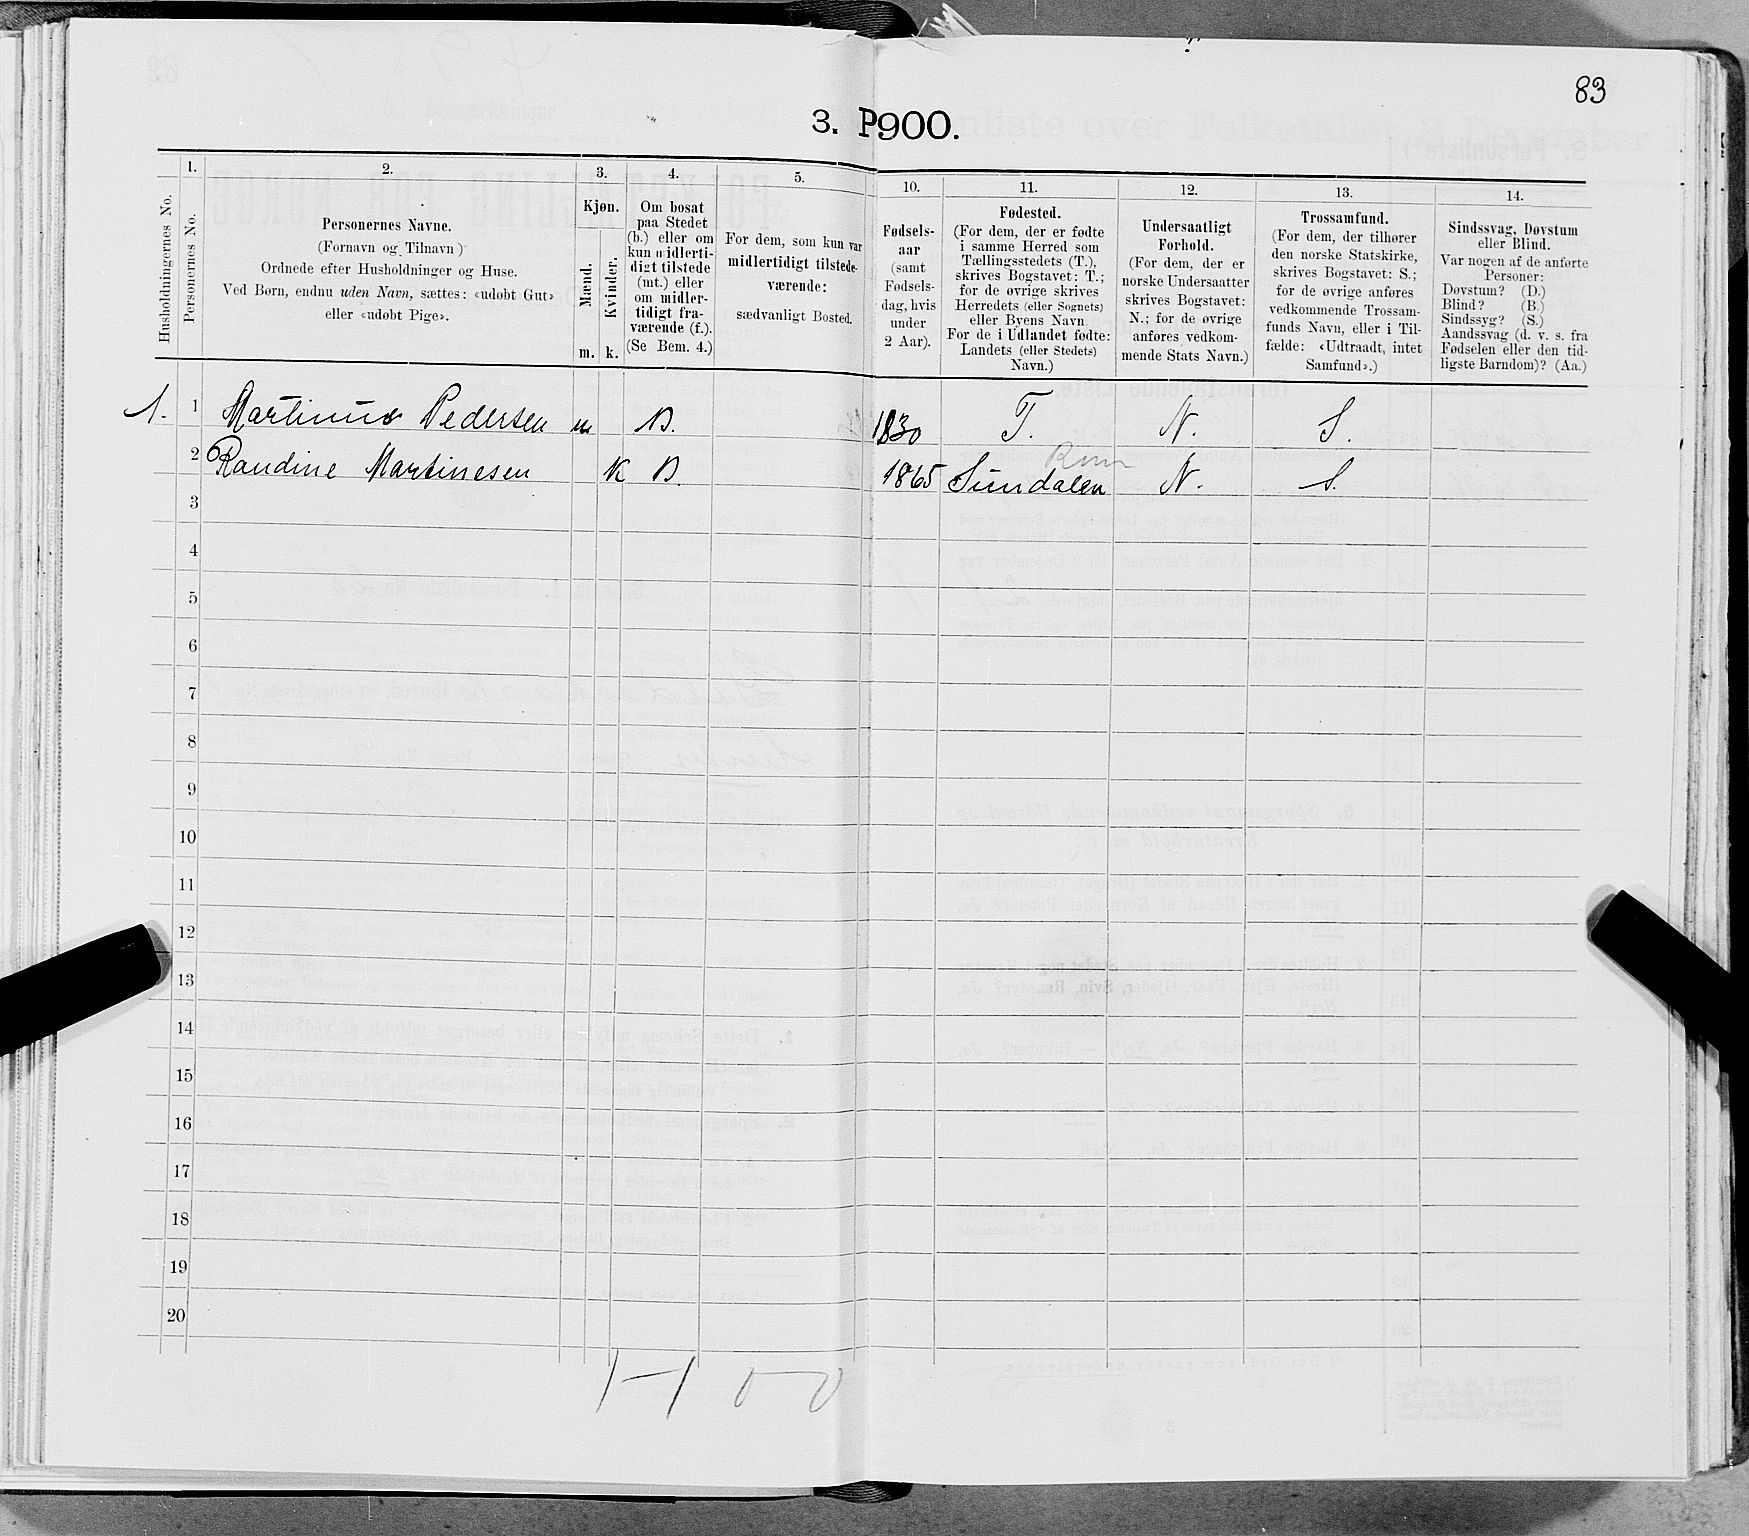 83
3. P900.
Husholdningernes No.
1.
Personernes No.
2.
Personernes Navne.
(Fornavn og Tilnavn.)
Ordnede efter Husholdninger og Huse.
Ved Børn, endnu uden Navn, sættes: «udøbt Gut»
eller «udøbt Pige».
3.
Kjøn.
Mænd.
Kvinder.
m. k.
4.
Om bosat
paa Stedet
(b.) eller om
kun midlerti-
digt tilstede
(mt.) eller
om midler-
tidigt fra-
værende (f.).
(Se Bem. 4.)
5.
For dem, som kun var
midlertidigt tilstede-
værende:
sædvanligt Bosted.
10.
Fødsels-
aar
(samt
Fødsels-
dag, hvis
under
2 Aar).
11.
Fødested.
(For dem, der er fødte
i samme Herred som
Tællingsstedets (T.),
skrives Bogstavet: T.;
for de øvrige skrives
Herredets (eller Sognets)
eller Byens Navn.
For de i Udlandet fødte:
Landets (eller Stedets)
Navn.)
12.
Undersaatligt
Forhold.
(For dem, der er
norske Undersaatter
skrives Bogstavet:
N.; for de øvrige
anføres vedkom-
mende Stats Navn.)
13.
Trossamfund.
(For dem, der tilhører
den norske Statskirke,
skrives Bogstavet: S.;
for de øvrige anføres
vedkommende Trossam-
funds Navn, eller i Til-
fælde: «Udtraadt, intet
Samfund».)
14.
Sindssvag, Døvstum
eller Blind.
Var nogen af de anførte
Personer:
Døvstum? (D.)
Blind? (B.)
Sindssyg? (S.)
Aandssvag (d. v. s. fra
Fødselen eller den tid-
ligste Barndom)? (Aa.)
1. 1 Martinus Pedersen m B. 1830 T. N. S.
Rom
2 Randine Martinesen K B. 1865 Sundalen N. S.
3
4
5
6
7
8
9
10
11
12
13
14
15
16
17
18
19
20
1-1 0-0